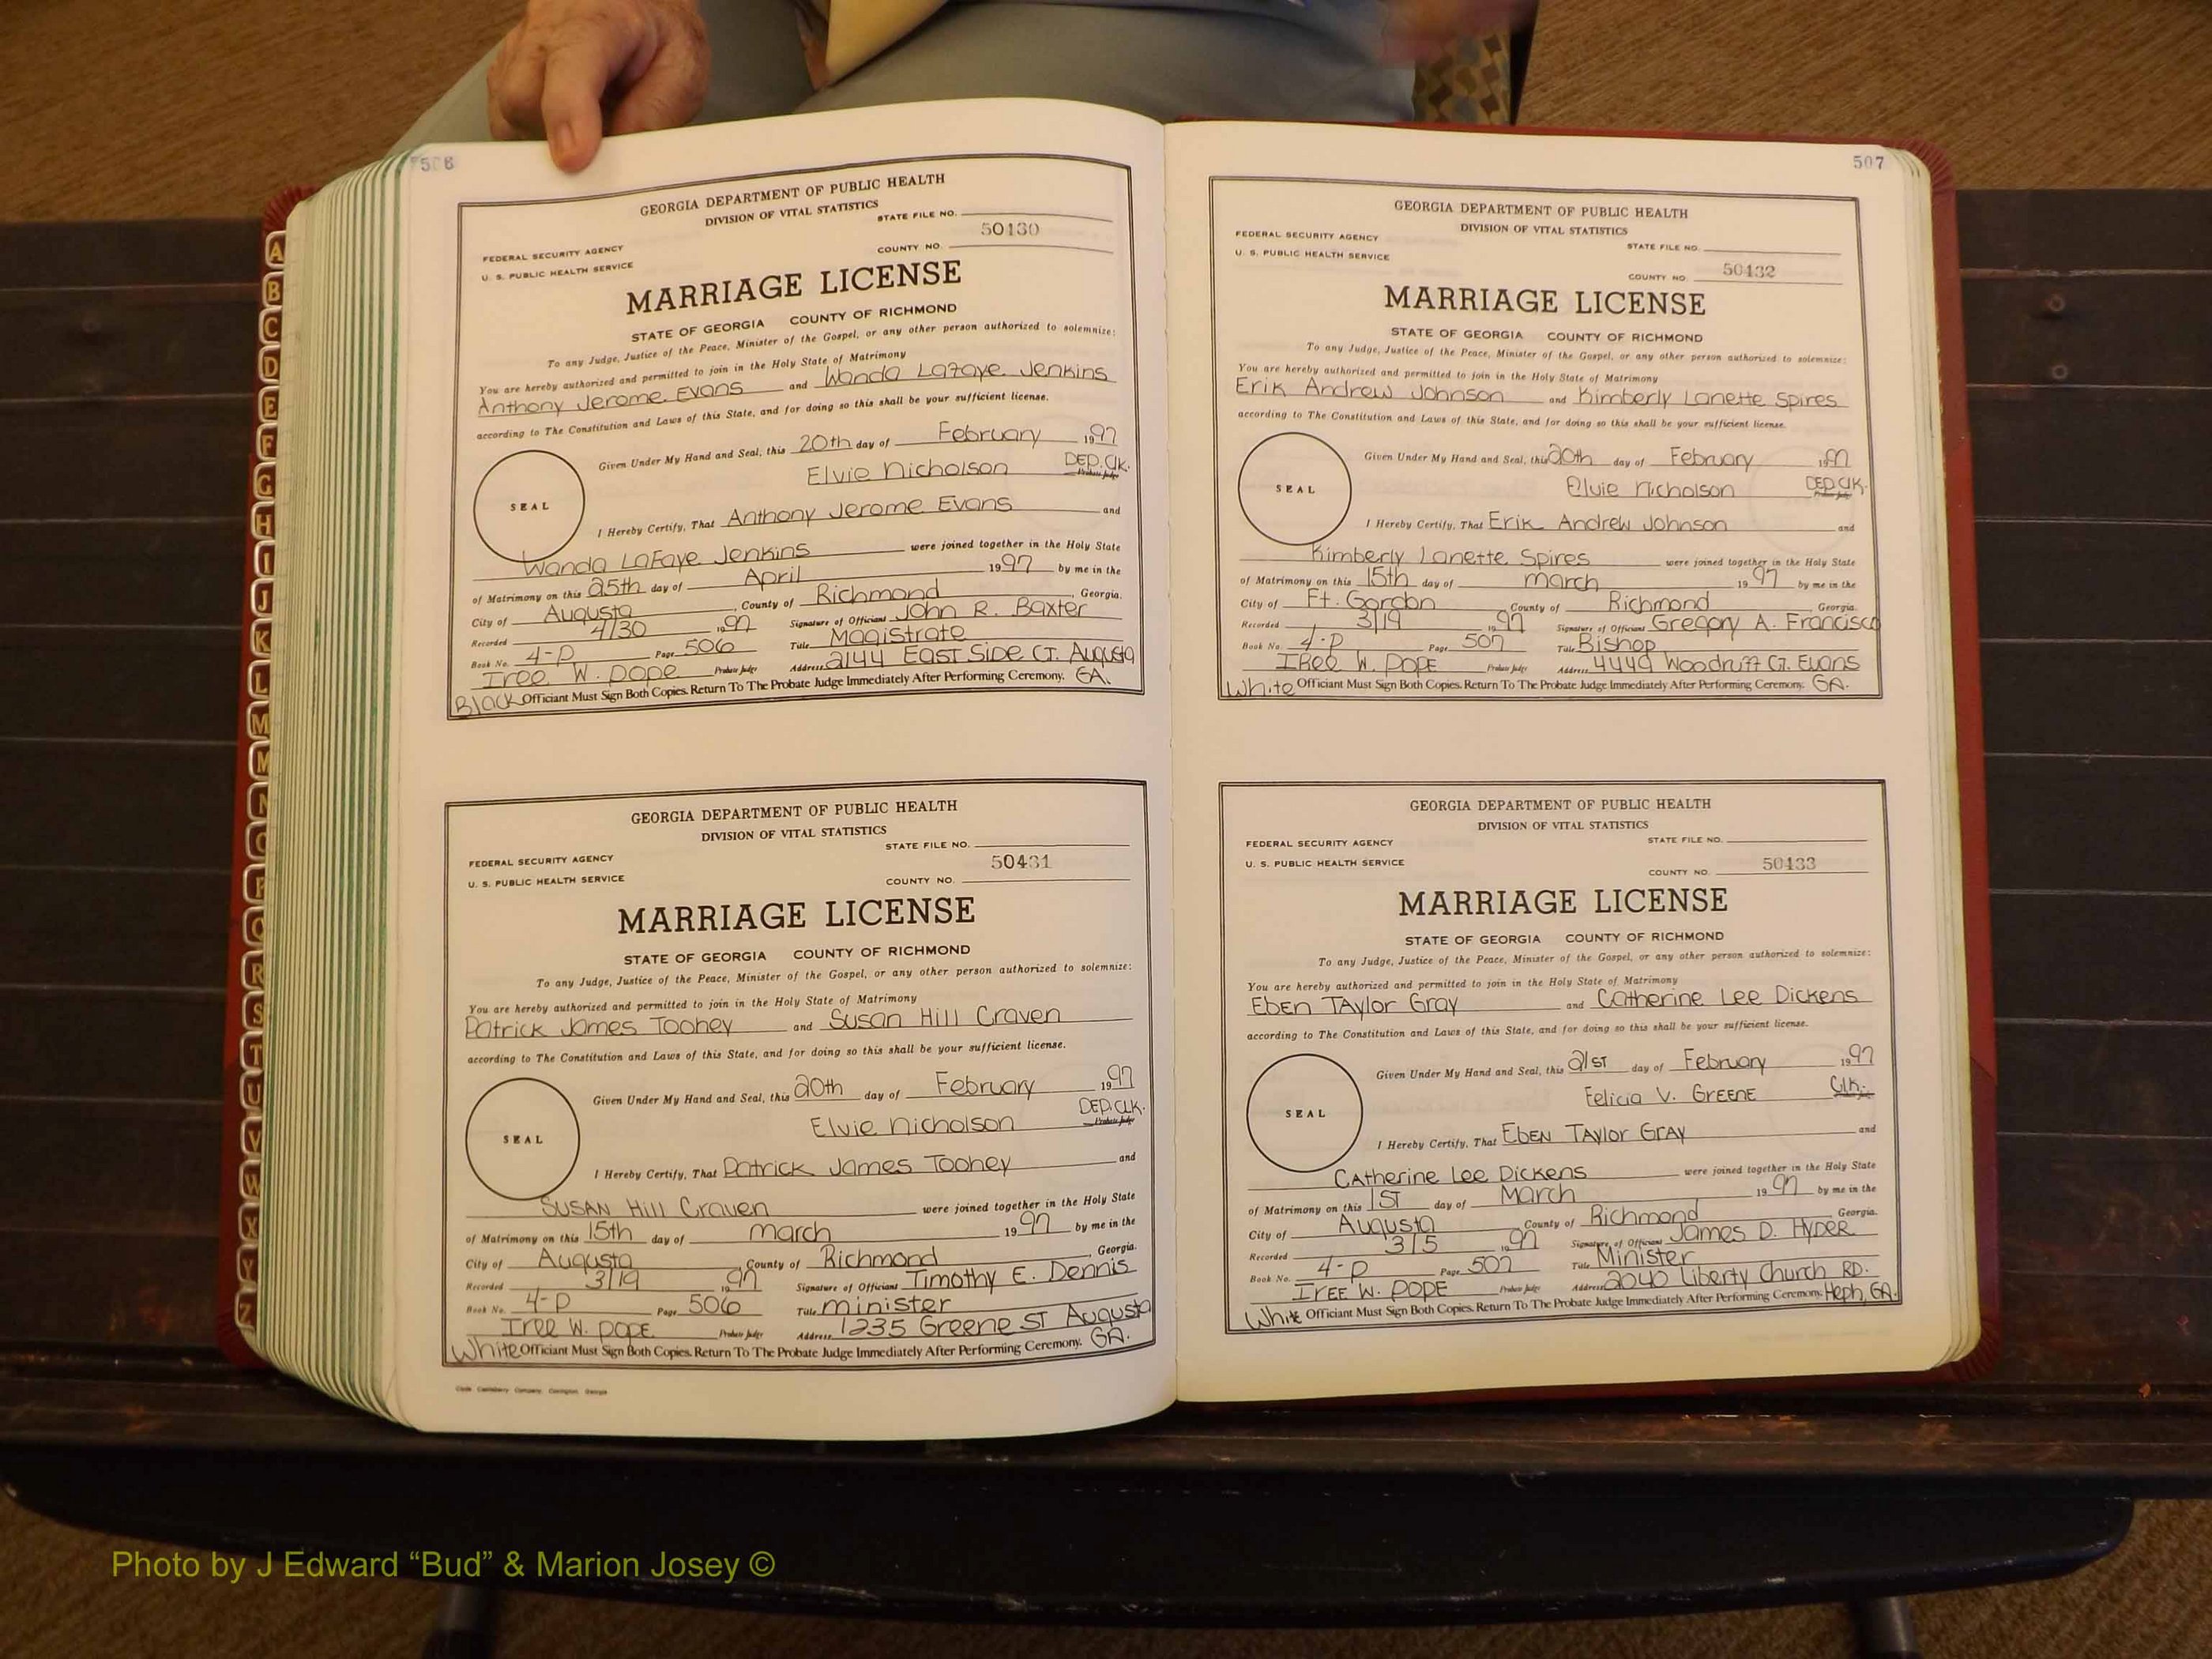 506
GEORGIA DEPARTMENT OF PUBLIC HEALTH
DIVISION OF VITAL STATISTICS
STATE FILE NO.
50430
FEDERAL SECURITY AGENCY
COUNTY NO.
U. S. PUBLIC HEALTH SERVICE
MARRIAGE LICENSE
STATE OF GEORGIA COUNTY OF RICHMOND
To any Judge, Justice of the Peace, Minister of the Gospel, or any other person authorized to solemnize:
You are hereby authorized and permitted to join in the Holy State of Matrimony
Anthony Jerome Evans and Wanda LaFaye Jenkins
according to The Constitution and Laws of this State, and for doing so this shall be your sufficient license.
Given Under My Hand and Seal, this 20th day of February 1997
Elvie Nicholson DEP. Clk.
Probate Judge
SEAL
I Hereby Certify, That Anthony Jerome Evans and
Wanda LaFaye Jenkins were joined together in the Holy State
of Matrimony on this 25th day of April 1997 by me in the
City of Augusta, County of Richmond, Georgia.
Recorded 4/30 1997 Signature of Officiant John R. Baxter
Book No. 4-P Page 506 Title Magistrate
Iree W. Pope Probate Judge Address 2144 East Side Ct. Augusta
Black Officiant Must Sign Both Copies. Return To The Probate Judge Immediately After Performing Ceremony. GA.
GEORGIA DEPARTMENT OF PUBLIC HEALTH
DIVISION OF VITAL STATISTICS
STATE FILE NO.
FEDERAL SECURITY AGENCY
50431
U. S. PUBLIC HEALTH SERVICE
COUNTY NO.
MARRIAGE LICENSE
STATE OF GEORGIA COUNTY OF RICHMOND
To any Judge, Justice of the Peace, Minister of the Gospel, or any other person authorized to solemnize:
You are hereby authorized and permitted to join in the Holy State of Matrimony
Patrick James Toohey and Susan Hill Craven
according to The Constitution and Laws of this State, and for doing so this shall be your sufficient license.
Given Under My Hand and Seal, this 20th day of February 1997
Elvie Nicholson DEP. CLK.
Probate Judge
SEAL
I Hereby Certify, That Patrick James Toohey and
SUSAN Hill Craven were joined together in the Holy State
of Matrimony on this 15th day of March 1997 by me in the
City of Augusta, County of Richmond, Georgia.
Recorded 3/19 1997 Signature of Officiant Timothy E. Dennis
Book No. 4-P Page 506 Title Minister
Iree W. Pope Probate Judge Address 1235 Greene ST Augusta
White Officiant Must Sign Both Copies. Return To The Probate Judge Immediately After Performing Ceremony. GA.
507
GEORGIA DEPARTMENT OF PUBLIC HEALTH
DIVISION OF VITAL STATISTICS
FEDERAL SECURITY AGENCY
STATE FILE NO.
U. S. PUBLIC HEALTH SERVICE
COUNTY NO. 50432
MARRIAGE LICENSE
STATE OF GEORGIA COUNTY OF RICHMOND
To any Judge, Justice of the Peace, Minister of the Gospel, or any other person authorized to solemnize:
You are hereby authorized and permitted to join in the Holy State of Matrimony
Erik Andrew Johnson and Kimberly Lanette Spires
according to The Constitution and Laws of this State, and for doing so this shall be your sufficient license.
Given Under My Hand and Seal, this 20th day of February 1997
Elvie Nicholson DEP. Clk.
Probate Judge
SEAL
I Hereby Certify, That Erik Andrew Johnson and
Kimberly Lanette Spires were joined together in the Holy State
of Matrimony on this 15th day of March 1997 by me in the
City of Ft. Gordon, County of Richmond Georgia.
Recorded 3/19 1997 Signature of Officiant Gregory A. Francisco
Book No. 4-P Page 507 Title Bishop
IRee W. Pope Probate Judge Address 4449 Woodruff Ct. Evans
White Officiant Must Sign Both Copies. Return To The Probate Judge Immediately After Performing Ceremony. GA.
GEORGIA DEPARTMENT OF PUBLIC HEALTH
DIVISION OF VITAL STATISTICS
FEDERAL SECURITY AGENCY
STATE FILE NO.
U. S. PUBLIC HEALTH SERVICE
COUNTY NO. 50433
MARRIAGE LICENSE
STATE OF GEORGIA COUNTY OF RICHMOND
To any Judge, Justice of the Peace, Minister of the Gospel, or any other person authorized to solemnize:
You are hereby authorized and permitted to join in the Holy State of Matrimony
Eben TAylor Gray and Catherine Lee Dickens
according to The Constitution and Laws of this State, and for doing so this shall be your sufficient license.
Given Under My Hand and Seal, this 21ST day of February 1997
Felicia V. GREENE Clk.
SEAL
I Hereby Certify, That EbEN TAYlor GrAY and
CAtherine Lee Dickens were joined together in the Holy State
of Matrimony on this 1ST day of March 1997 by me in the
City of Augusta, County of Richmond Georgia.
Recorded 3/5 1997 Signature of Officiant James D. HYDER
Book No. 4-P Page 507 Title Minister
IrEE W. POPE Probate Judge Address 2040 Liberty Church RD.
White Officiant Must Sign Both Copies. Return To The Probate Judge Immediately After Performing Ceremony. Heph, GA.
A
B
C
D
E
F
G
H
I
J
K
L
M
M
N
O
P
Q
R
S
T
U
V
W
X
Y
Z
Photo by J Edward “Bud” & Marion Josey ©